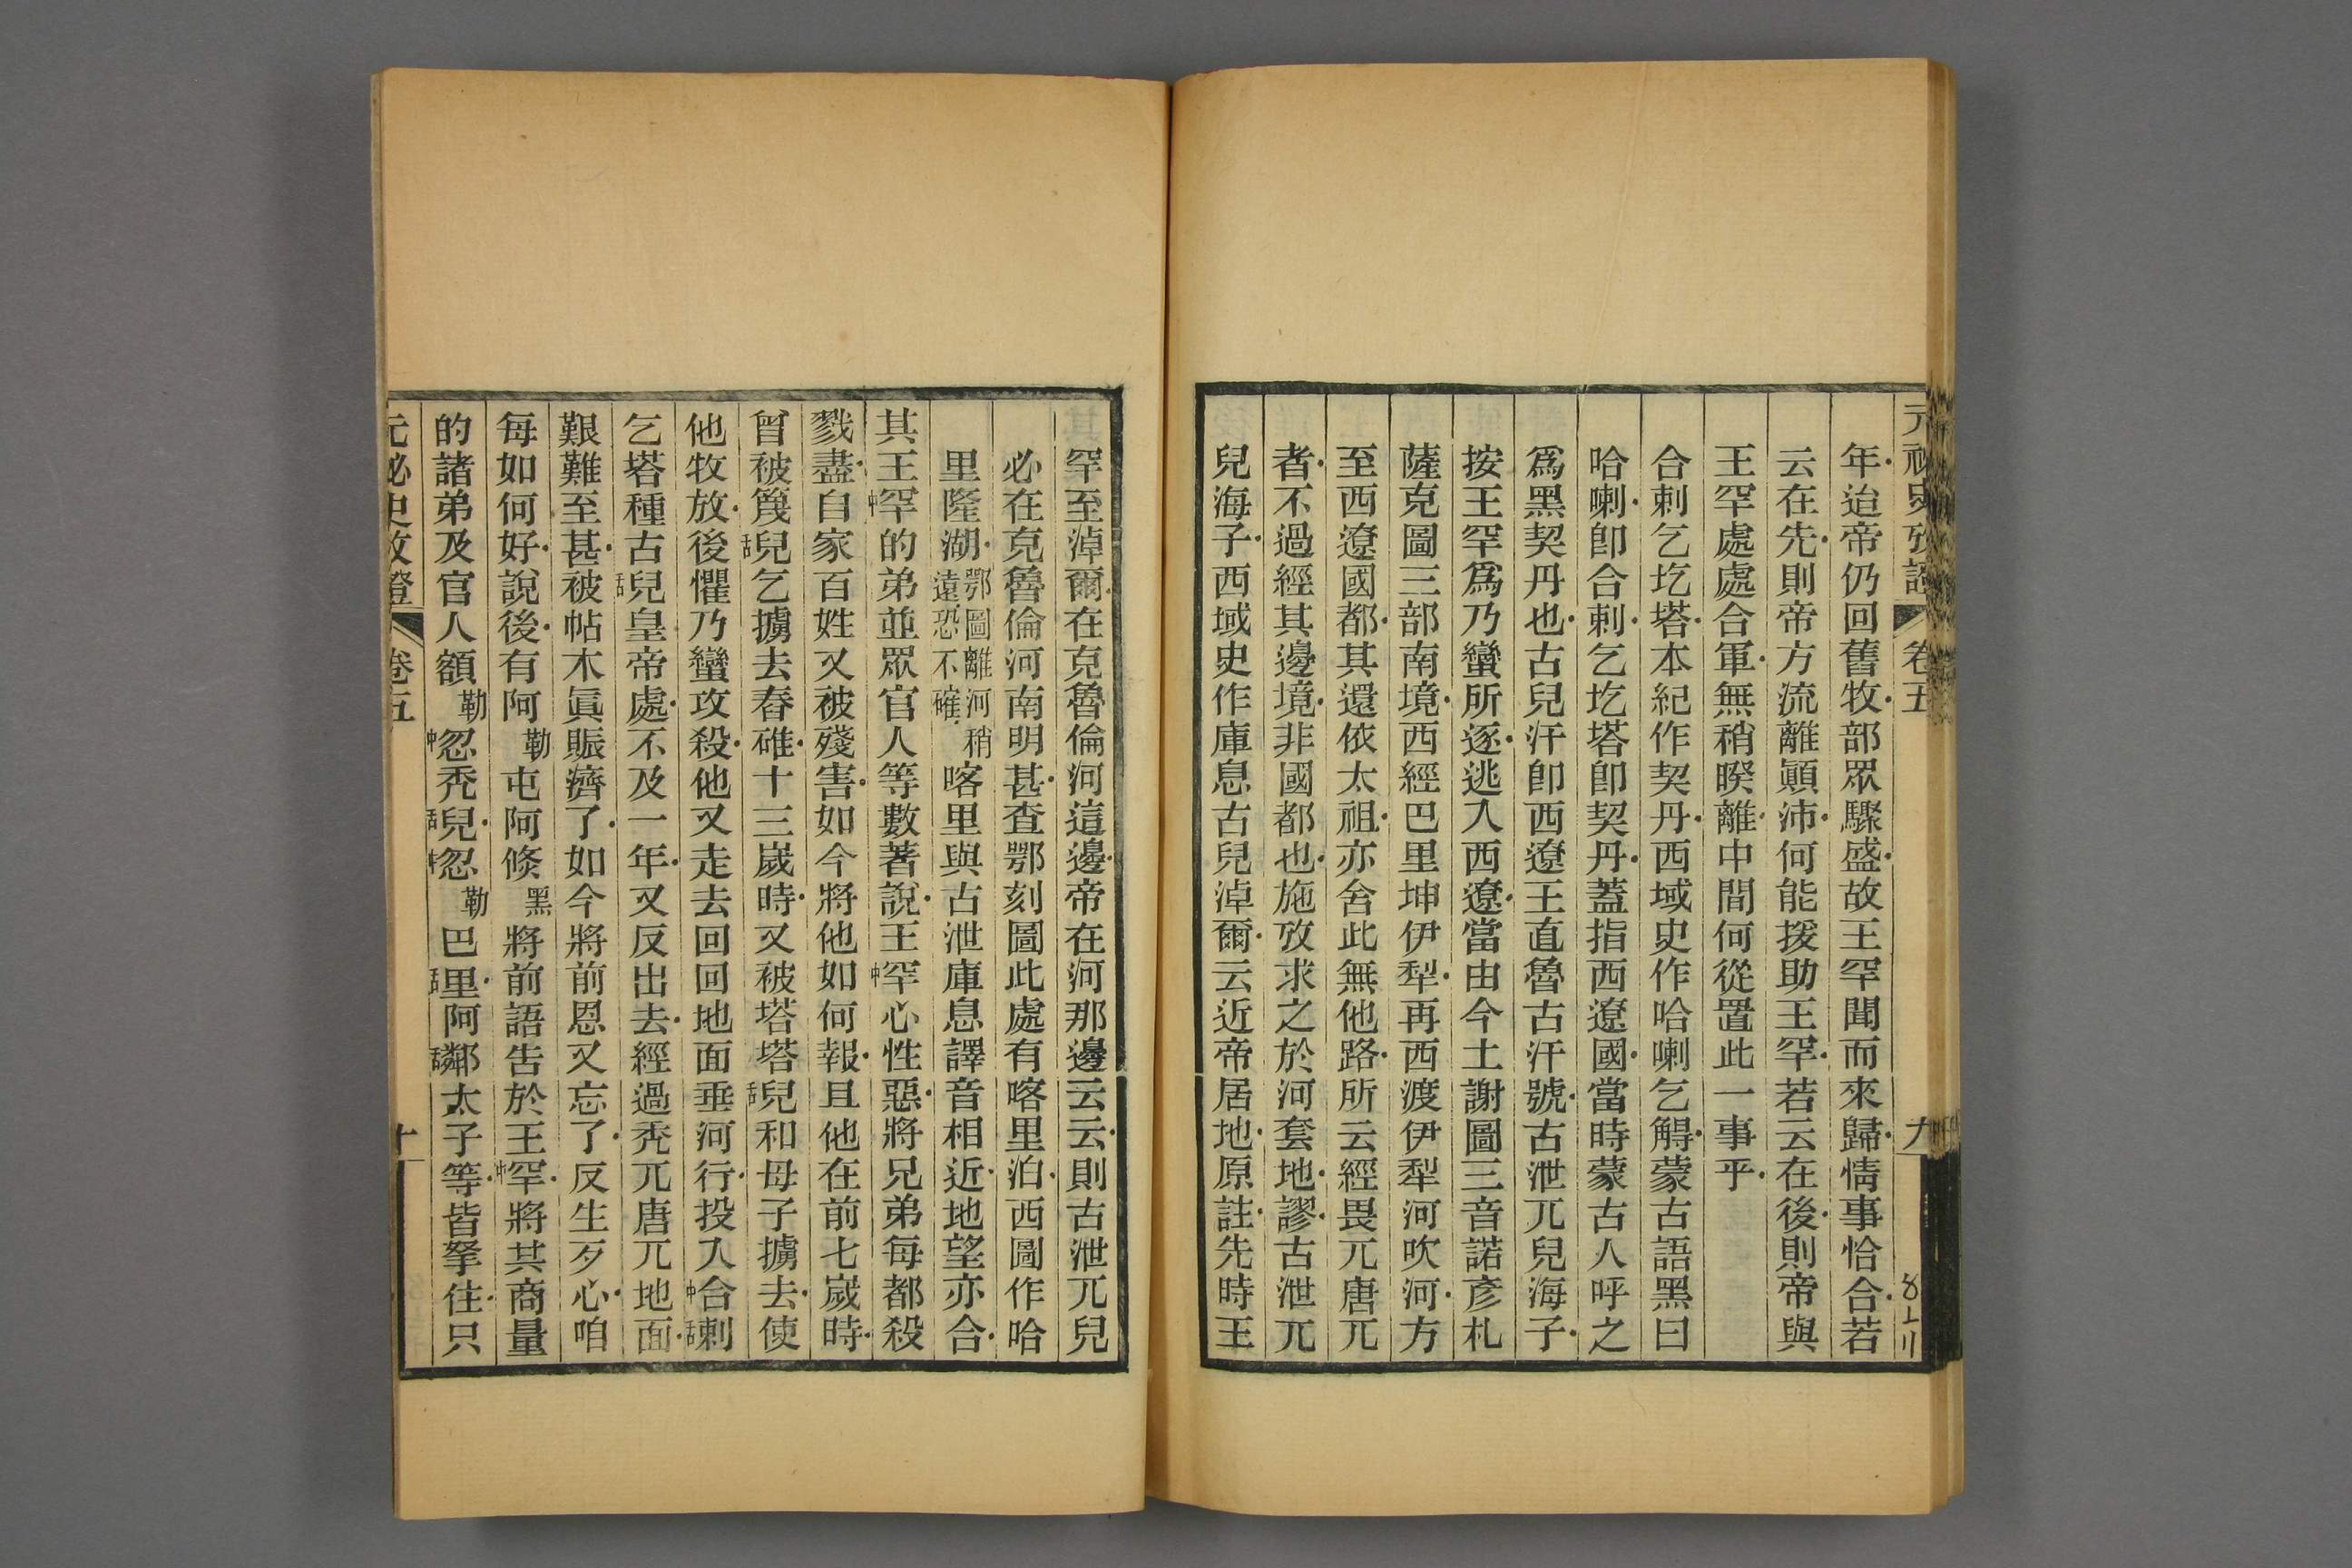 元祕史攷證 卷五 九
年迨帝仍回舊牧部眾驟盛故王罕聞而來歸情事恰合若
云在先則帝方流離顚沛何能援助王罕若云在後則帝與
王罕處處合軍無稍暌離中間何從置此一事乎
合剌乞圪塔本紀作契丹西域史作哈喇乞䚟蒙古語黑曰
哈喇卽合剌乞圪塔卽契丹蓋指西遼國當時蒙古人呼之
爲黑契丹也古兒汗卽西遼王直魯古汗號古泄兀兒海子
按王罕爲乃蠻所逐逃入西遼當由今土謝圖三音諾彥札
薩克圖三部南境西經巴里坤伊犁再西渡伊犁河吹河方
至西遼國都其還依太祖亦舍此無他路所云經畏兀唐兀
者不過經其邊境非國都也施攷求之於河套地謬古泄兀
兒海子西域史作庫息古兒淖爾云近帝居地原註先時王
罕至淖爾在克魯倫河這邊帝在河那邊云云則古泄兀兒
必在克魯倫河南明甚查鄂刻圖此處有喀里泊西圖作哈
里隆湖鄂圖離河稍遠恐不確喀里與古泄庫息譯音相近地望亦合
其王中罕的弟並眾官人等數著說王中罕心性惡將兄弟每都殺
戮盡自家百姓又被殘害如今將他如何報且他在前七歲時
曾被篾舌兒乞擄去舂碓十三歲時又被塔塔舌兒和母子擄去使
他牧放後懼乃蠻攻殺他又走去回回地面垂河行投入中合舌剌
乞塔種古舌兒皇帝處不及一年又反出去經過禿兀唐兀地面
艱難至甚被帖木眞賑濟了如今將前恩又忘了反生歹心咱
每如何好說後有阿勒屯阿倐黑將前語告於王中罕將其商量
的諸弟及官人額勒中忽禿舌兒中忽勒巴舌里阿舌鄰太子等皆拏住只
元祕史攷證 卷五 十